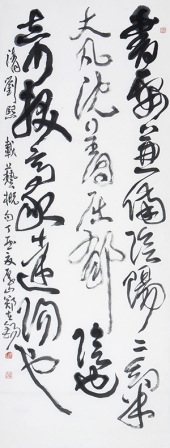 書要兼備陰陽二氣
大凡沈著屈鬱陰也
奇拔豪達陽也
清劉熙載藝概句丁亥夏